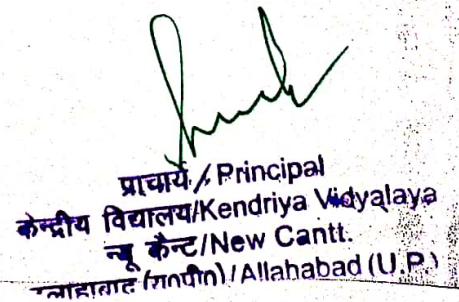 प्राचार्य / Principal
केन्द्रीय विद्यालय/Kendriya Vidyalaya
न्यू कैन्ट/New Cantt.
/Allahabad (U.P.)